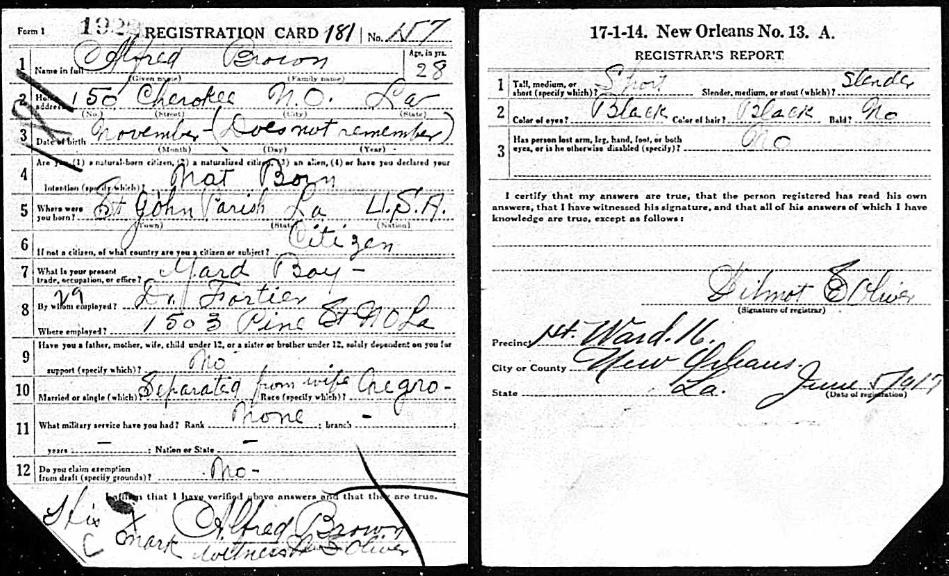 Form 1 REGISTRATION CARD 181 No. 157
Age, in yrs.
1 Alfred Brown 28
Name in full (Given name) (Family name)
2 Home address 150 Cherokee N.O. La
(No.) (Street) (City) (State)
3 Date of birth November - (Does not remember)
(Month) (Day) (Year)
Are you (1) a natural-born citizen, (2) a naturalized citizen, (3) an alien, (4) or have you declared your
4 intention (specify which)? Nat Born
5 Where were you born? St John Parish La U.S.A.
(Town) (State) (Nation)
6 If not a citizen, of what country are you a citizen or subject? Citizen
7 What is your present trade, occupation, or office? Yard Boy -
29
8 By whom employed? Dr. Fortier
Where employed? 1503 Pine St N O La
9 Have you a father, mother, wife, child under 12, or a sister or brother under 12, solely dependent on you for
support (specify which)? No
10 Married or single (which)? Separated from wife Race (specify which)? Negro -
11 What military service have you had? Rank None ; branch -
years - ; Nation or State -
12 Do you claim exemption from draft (specify grounds)? No -
I affirm that I have verified above answers and that they are true.
His X mark Alfred Brown
Witness Oliver
17-1-14. New Orleans No. 13. A.
REGISTRAR'S REPORT
1 Tall, medium, or short (specify which)? Short Slender, medium, or stout (which)? Slender
2 Color of eyes? Black Color of hair? Black Bald? No
3 Has person lost arm, leg, hand, foot, or both eyes, or is he otherwise disabled (specify)? No
I certify that my answers are true, that the person registered has read his own
answers, that I have witnessed his signature, and that all of his answers of which I have
knowledge are true, except as follows:
Wilmot E Oliver
(Signature of registrar)
Precinct 1st. Ward. 16.
City or County New Orleans.
State La. June 5/917
(Date of registration)